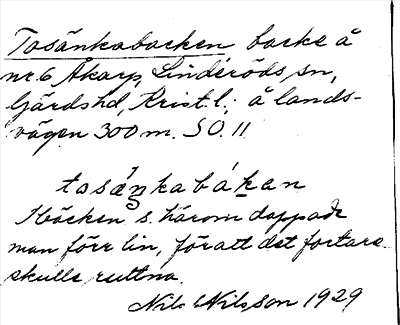 Tosänkabacken backe å
nr.6 Åkarp, Linderöds sn,
Gärds hd, Krist.l.; å lands-
vägen 300 m. SO. 11
tosáŋkabákan
I bäcken s. härom doppade
man förr lin, för att det fortare
skulle ruttna.
Nils Nilsson 1929